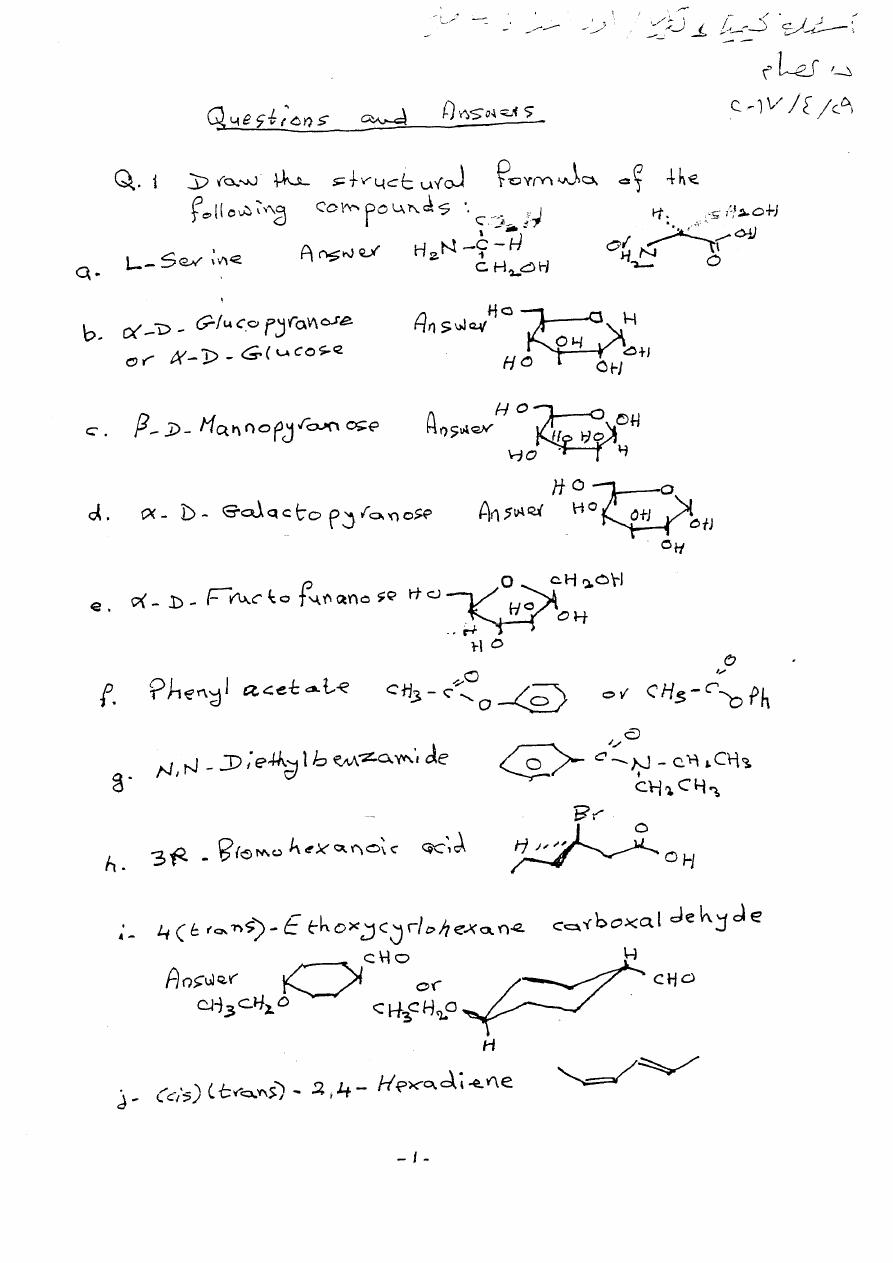 أسئلة كيمياء
د. عصام
٢٠١٧/٤/٢٩
Questions and Answers
Q.1 Draw the structural formula of the
following compounds :
a. L-Serine Answer H2N-C-H CH2OH or H H2N OH O
b. α-D-Glucopyranose Answer HO O H OH OH HO OH
or α-D-Glucose
c. β-D-Mannopyranose Answer HO O OH HO HO HO H
d. α-D-Galactopyranose Answer HO O HO OH OH OH
e. α-D-Fructofuranose HO O CH2OH HO OH H HO
f. Phenyl acetate CH3-C O O or CH3-C O O Ph
g. N,N-Diethylbenzamide C O N-CH2CH3 CH2CH3
h. 3R-Bromohexanoic acid Br H O OH
i- 4(trans)-Ethoxycyclohexane carboxaldehyde
Answer CHO CH3CH2O or CH3CH2O H CHO H
j- (cis)(trans)-2,4-Hexadiene
-1-